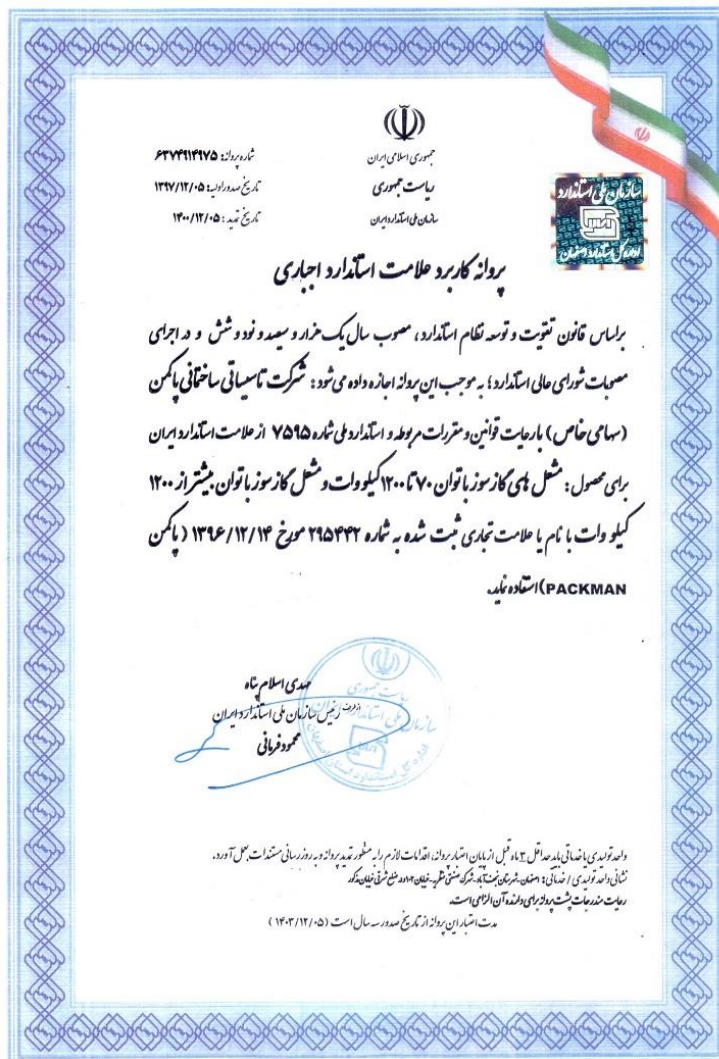 جمهوری اسلامی ایران
ریاست جمهوری
سازمان ملی استاندارد ایران
شماره پروانه: ۶۳۷۴۹۱۴۹۷۵
تاریخ صدور اولیه: ۱۳۹۷/۱۲/۰۵
تاریخ تمدید: ۱۴۰۰/۱۲/۰۵
سازمان ملی استاندارد
اداره کل استاندارد اصفهان
پروانه کاربرد علامت استاندارد اجباری
براساس قانون تقویت و توسعه نظام استاندارد، مصوب سال یک هزار و سیصد و نود و شش و در اجرای
مصوبات شورای عالی استاندارد؛ به موجب این پروانه اجازه داده می شود: شرکت تاسیساتی ساختمانی پاکمن
(سهامی خاص) با رعایت قوانین و مقررات مربوطه و استاندارد ملی شماره ۷۵۹۵ از علامت استاندارد ایران
برای محصول: مشعل های گازسوز با توان ۷۰ تا ۱۲۰۰ کیلو وات و مشعل گازسوز با توان بیشتر از ۱۲۰۰
کیلو وات با نام یا علامت تجاری ثبت شده به شماره ۲۹۵۴۴۲ مورخ ۱۳۹۶/۱۲/۱۴ (پاکمن
PACKMAN) استفاده نماید.
مهدی اسلام پناه
از طرف رئیس سازمان ملی استاندارد ایران
محمود فرمانی
ریاست جمهوری
سازمان ملی استاندارد ایران
اداره کل استاندارد استان اصفهان
واحد تولیدی یا خدماتی باید حداقل ۳ ماه قبل از پایان اعتبار پروانه، اقدامات لازم را به منظور تمدید پروانه و به روز رسانی مستندات بعمل آورد.
نشانی واحد تولیدی / خدماتی: اصفهان، شهرستان نجف آباد، شهرک صنعتی منتظریه - خیابان
رعایت مندرجات پشت پروانه برای دارنده آن الزامی است.
مدت اعتبار این پروانه از تاریخ صدور سه سال است (۱۴۰۳/۱۲/۰۵)